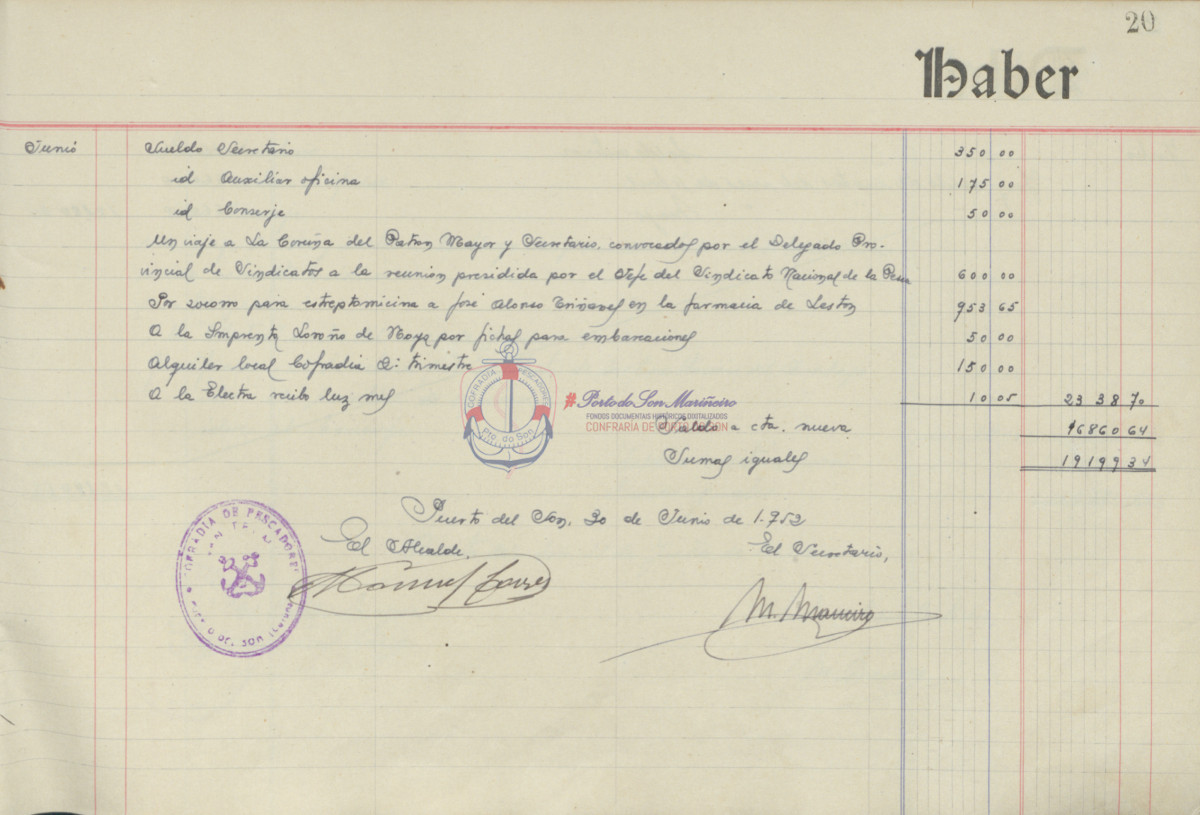 20
Haber
Junio Sueldo Secretario 350 00
id Auxiliar oficina 175 00
id Conserje 50 00
Un viaje a La Coruña del Patron Mayor y Secretario, convocados por el Delegado Pro-
vincial de Sindicatos a la reunion presidida por el Jefe del Sindicato Nacional de la Pesca 600 00
Por socorro para estreptomicina a José Alonso en la farmacia de Leston 953 65
A la Imprenta Loroño de Noya por fichas para embarcaciones 50 00
Alquiler local Cofradia 2º trimestre 150 00
A la Electra recibo luz mes 10 05 2338 70
Saldo a cta. nueva 16860 64
Sumas iguales 19199 34
COFRADIA PESCADORES
Pto. do Son
#Porto do Son Mariñeiro
FONDOS DOCUMENTAIS HISTÓRICOS DIXITALIZADOS
CONFRARÍA DE PORTO DO SON
Puerto del Son, 30 de Junio de 1.953
El Alcalde, El Secretario,
COFRADIA DE PESCADORES
SAN TELMO
Manuel M. Maneiro